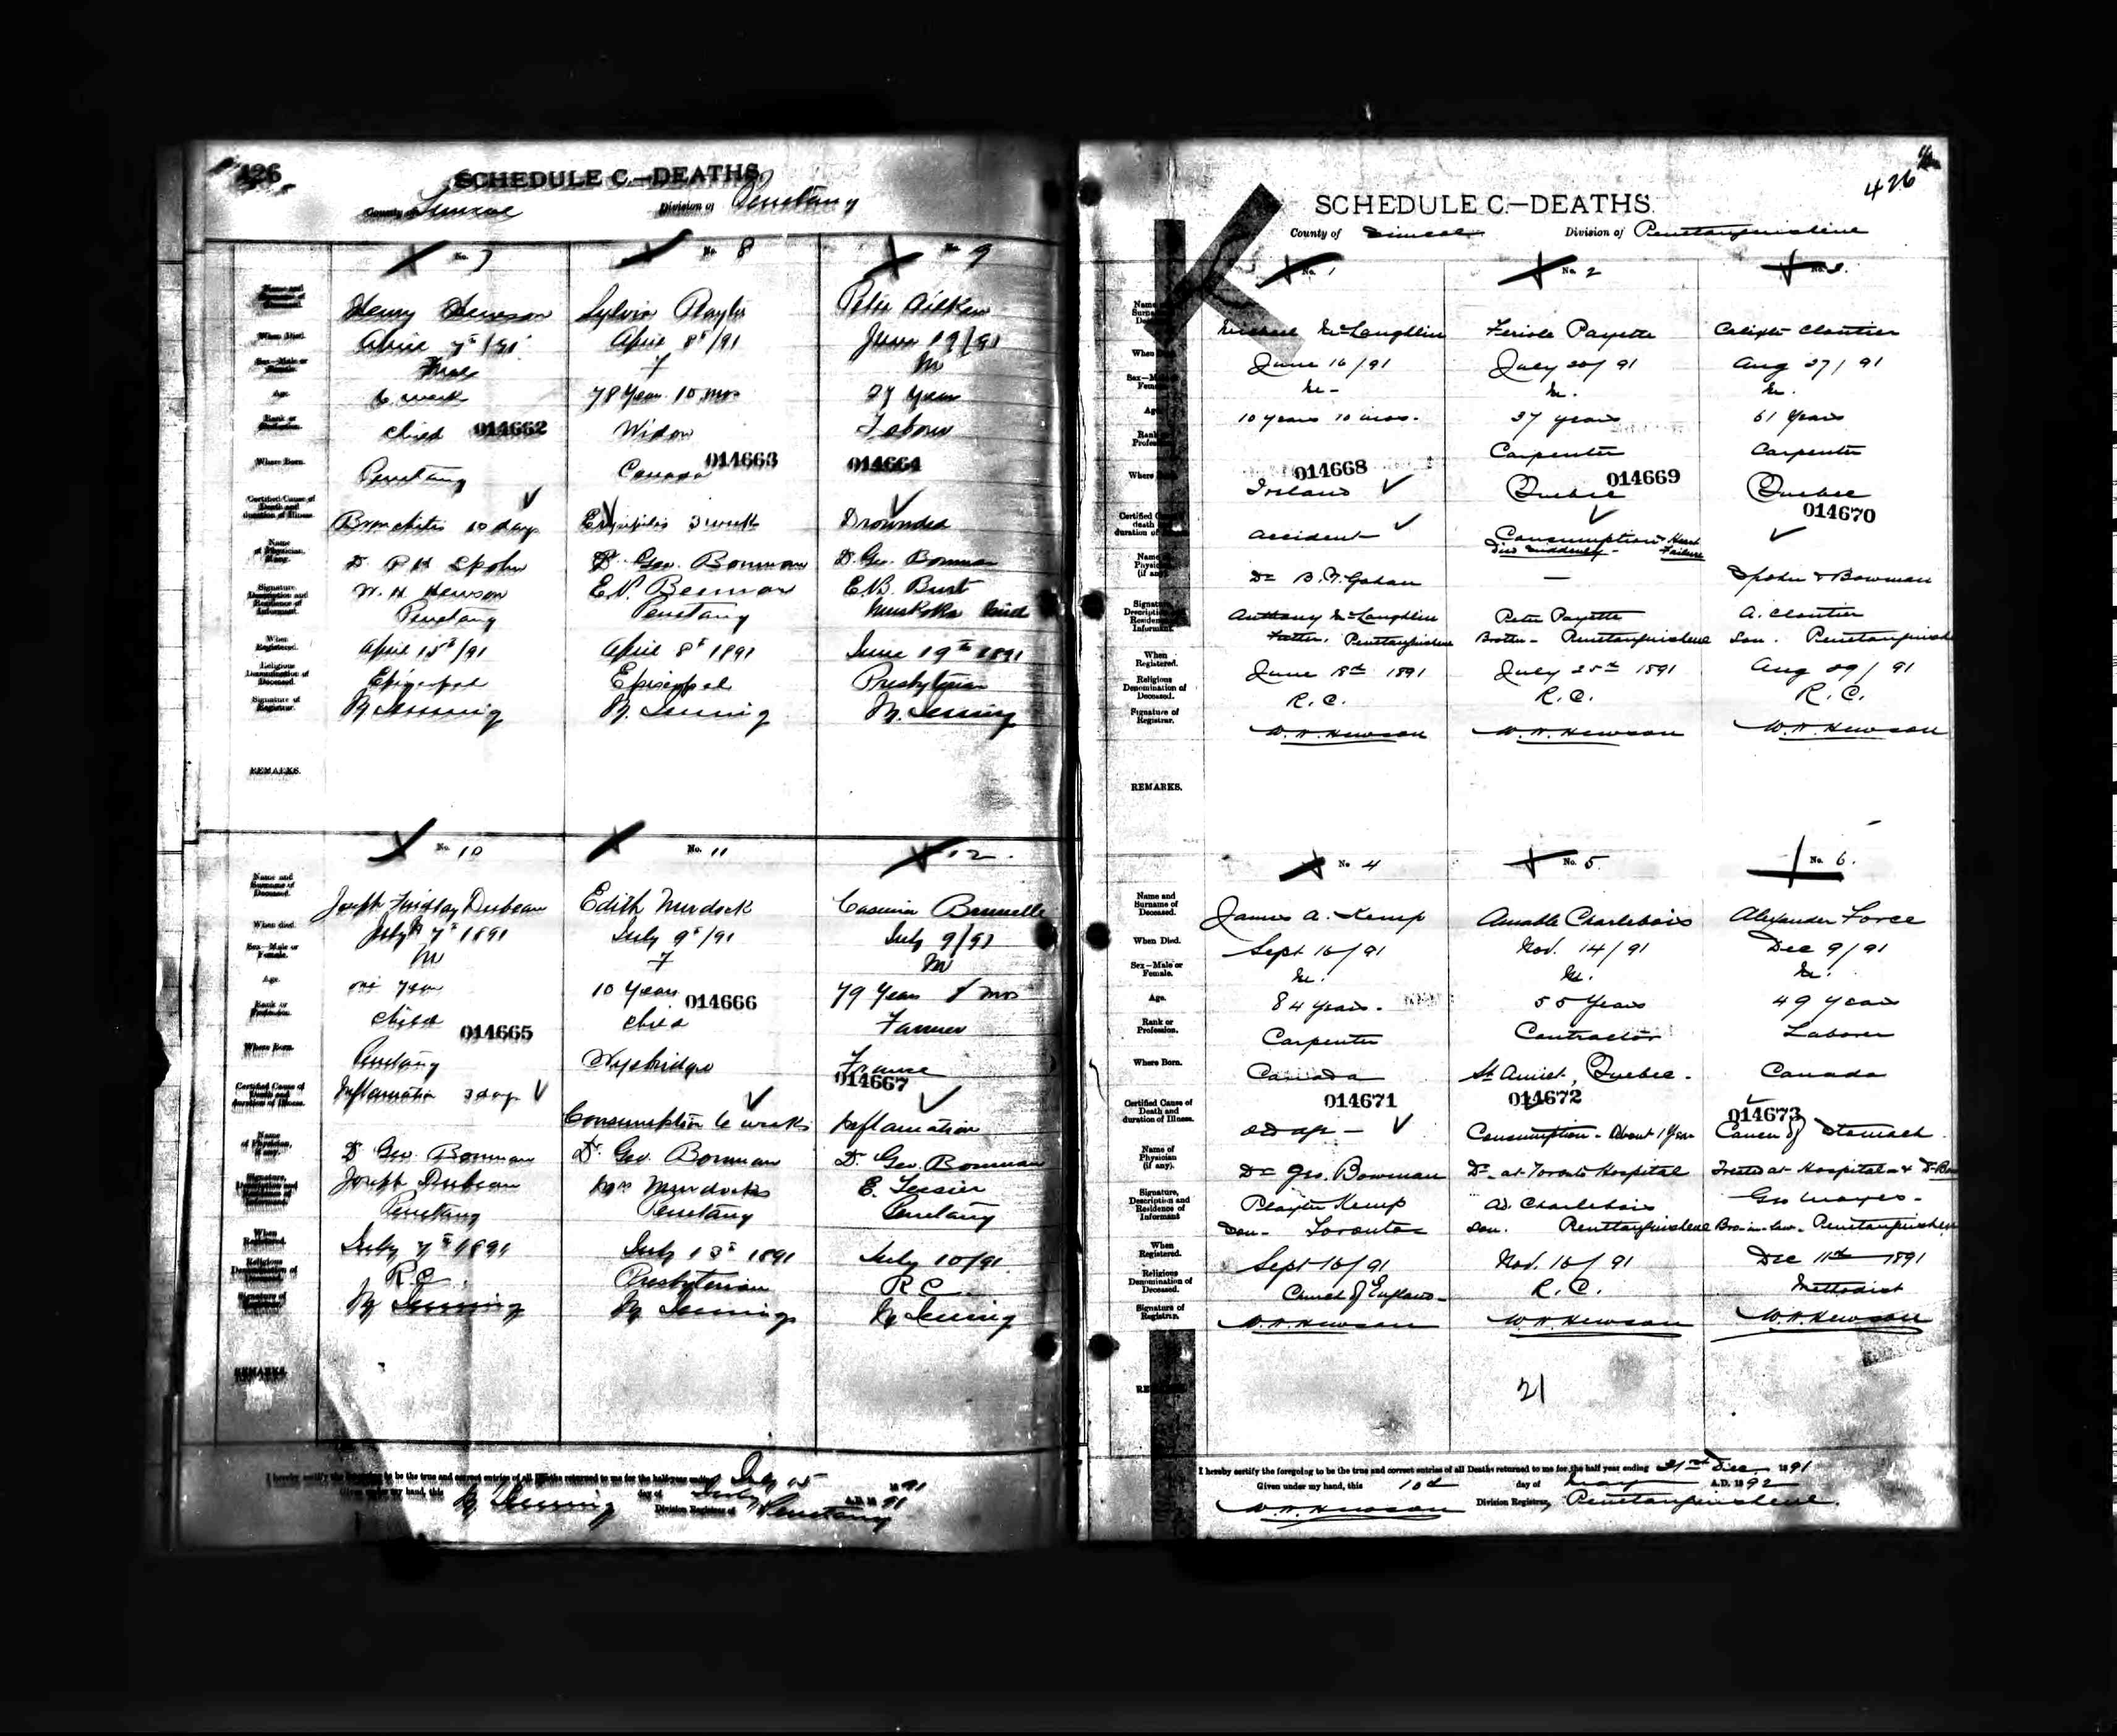 426
SCHEDULE C.—DEATHS.
County of Simcoe Division of Penetang
No. 7 No. 8 No. 9
Name and Surname of Deceased. Henry Hewson Sylvia Playter Peter Aitken
When Died. April 7th/91 April 8th/91 June 19/91
Sex—Male or Female. Male F M
Age. 6 week 78 Years 10 mos 27 Years
Rank or Profession. Child 014662 Widow Labour
Where Born. Penetang Canada 014663 014664
Certified Cause of Death and duration of Illness. Bronchitis 10 days Erysipelas 3 weeks Drownded
Name of Physician, if any. Dr P H Spohn Dr Geo. Bowman Dr. Geo. Bowman
Signature, Description and Residence of Informant. W. H. Hewson E. B. Burt
Penetang Penetang Muskoka
When Registered. April 15th/91 April 8th 1891 June 19th 1891
Religious Denomination of Deceased. Episcopal Episcopal Presbyterian
Signature of Registrar.
REMARKS.
No. 10 No. 11 12.
Name and Surname of Deceased. Joseph Findlay Dubeau Edith Murdock Casimir Brunelle
When died. July 7th 1891 July 9th/91 July 9/91
Sex—Male or Female. M F M
Age. one year 10 Years 014666 79 Years 8 mos
Rank or Profession. Child 014665 Child Farmer
Where Born. Penetang Wyebridge France
014667
Certified Cause of Death and duration of Illness. Inflamation 3 days Consumption 6 weeks Inflamation
Name of Physician, if any. Dr Geo. Bowman Dr. Geo. Bowman Dr. Geo. Bowman
Signature, Description and Residence of Informant. Joseph Dubeau Mrs Murdock E. Tessier
Penetang Penetang Penetang
When Registered. July 7th 1891 July 13th 1891 July 10/91
Religious Denomination of Deceased. R.C. Presbyterian R C
Signature of Registrar.
REMARKS.
I hereby certify the foregoing to be the true and correct entries of all Deaths returned to me for the half year ending July 15 1891
Given under my hand, this day of July A.D. 1891
Division Registrar of Penetang
426
SCHEDULE C.—DEATHS.
County of Simcoe Division of Penetanguishene
No. 1 No. 2 No. 3.
Name and Surname of Deceased. Michael McLaughlin Payette Calixte Cloutier
When Died. June 16/91 July 20/91 Aug 27/91
Sex—Male or Female. M- M. M.
Age. 10 years 10 mos. 37 years 61 Years
Rank or Profession. Carpenter Carpenter
Where Born. 014668 Ireland Quebec 014669 Quebec
014670
Certified Cause of death and duration of Illness. Accident Consumption - Heart Failure
Died suddenly -
Name of Physician (if any). Dr B. F. Gahan — Spohn & Bowman
Signature, Description and Residence of Informant. Anthony McLaughlin Peter Payette A. Cloutier
Father. Penetanguishene Brother - Penetanguishene Son. Penetanguishene
When Registered. June 18th 1891 July 25th 1891 Aug 29/91
Religious Denomination of Deceased. R.C. R.C. R.C.
Signature of Registrar. W. H. Hewson W. H. Hewson W. H. Hewson
REMARKS.
No 4 No. 5 No. 6.
Name and Surname of Deceased. James A. Kemp Amable Charlebois Alexander Force
When Died. Sept 16/91 Nov. 14/91 Dec 9/91
Sex—Male or Female. M. M. M.
Age. 84 years. 55 Years 49 years
Rank or Profession. Carpenter Contractor Laborer
Where Born. Canada Quebec. Canada
014671 014672 014673
Certified Cause of Death and duration of Illness. Old age — Consumption - About 1 Year Cancer of Stomach
Name of Physician (if any). Dr Geo. Bowman Dr. at Toronto Hospital Treated at Hospital &
Signature, Description and Residence of Informant Playter Kemp A. Charlebois Geo Mayes -
Son - Toronto Son. Penetanguishene Bro-in-law - Penetanguishene
When Registered. Sept 16/91 Nov. 16/91 Dec 11th 1891
Religious Denomination of Deceased. Church of England - R.C. Methodist
Signature of Registrar. W. H. Hewson W. H. Hewson W. H. Hewson
REMARKS.
21
I hereby certify the foregoing to be the true and correct entries of all Deaths returned to me for the half year ending 31st Dec 1891
Given under my hand, this 10th day of May A.D. 1892
W. H. Hewson Division Registrar, Penetanguishene.